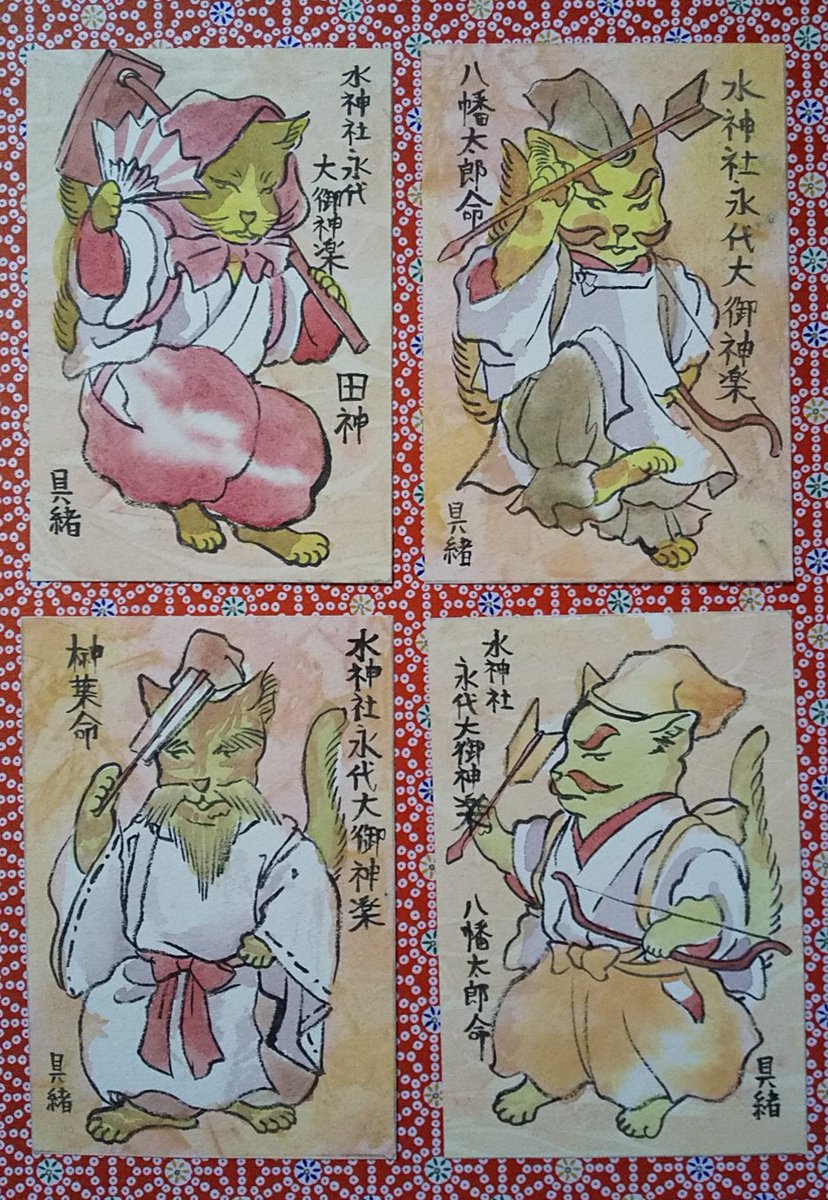 水神社・永代
大御神楽
田神
具緒
水神社・永代大御神楽
八幡太郎命
具緒
水神社永代大御神楽
榊葉命
具緒
水神社
永代大御神楽
八幡太郎命
具緒